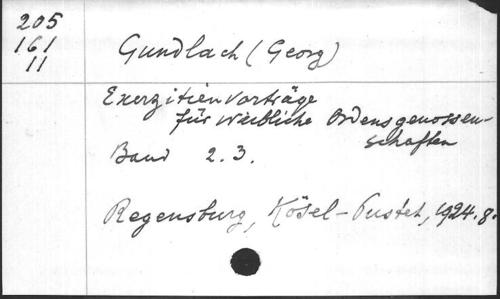 205
161
11
Gundlach (Georg)
Exerzitienvorträge
für weibliche Ordensgenossen-
schaften
Band 2. 3.
Regensburg, Kösel-Pustet, 1924. 8.